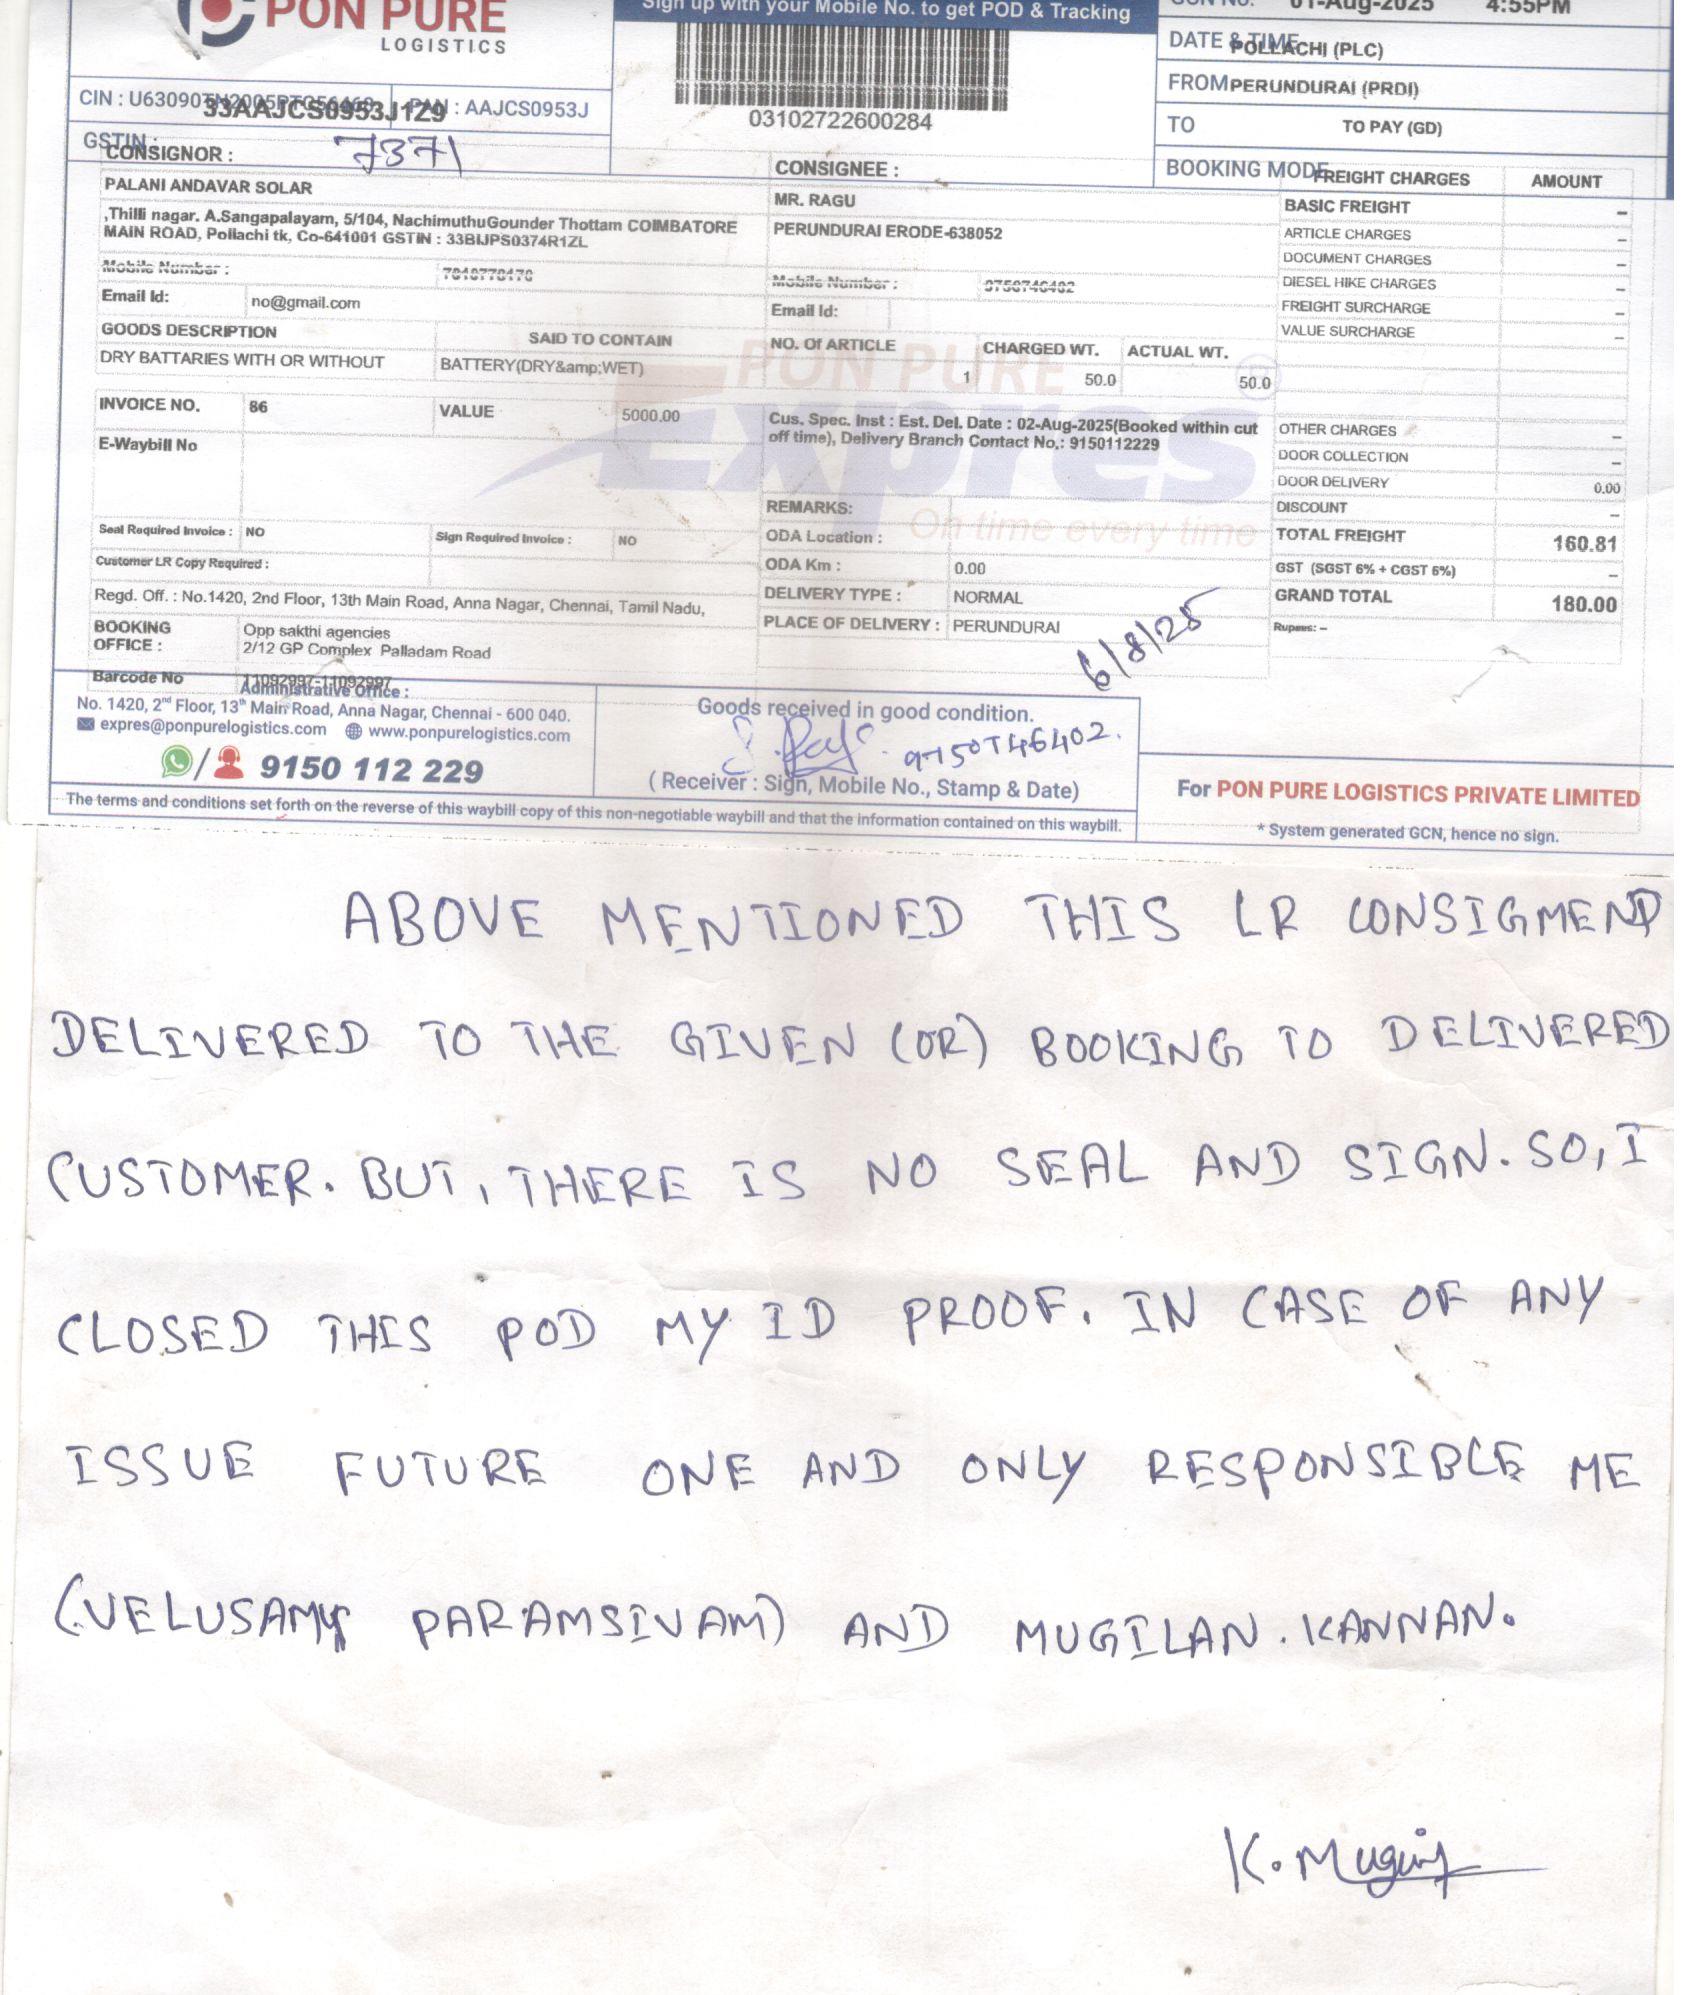 PON PURE
LOGISTICS
Sign up with your Mobile No. to get POD & Tracking
03102722600284
GCN No. 01-Aug-2025 4:55PM
DATE & TIME POLLACHI (PLC)
FROM PERUNDURAI (PRDI)
TO TO PAY (GD)
BOOKING MODE
CIN : PAN : AAJCS0953J
33AAJCS0953J1Z9
GSTIN :
CONSIGNOR : 7371
PALANI ANDAVAR SOLAR
,Thilli nagar. A.Sangapalayam, 5/104, NachimuthuGounder Thottam COIMBATORE
MAIN ROAD, Pollachi tk, Co-641001 GSTIN : 33BIJPS0374R1ZL
Mobile Number :
Email Id: no@gmail.com
GOODS DESCRIPTION SAID TO CONTAIN
DRY BATTARIES WITH OR WITHOUT BATTERY(DRY&amp;WET)
INVOICE NO. 86 VALUE 5000.00
E-Waybill No
Seal Required Invoice : NO Sign Required Invoice : NO
Customer LR Copy Required :
Regd. Off. : No.1420, 2nd Floor, 13th Main Road, Anna Nagar, Chennai, Tamil Nadu,
BOOKING Opp sakthi agencies
OFFICE : 2/12 GP Complex Palladam Road
Barcode No 11092997-11092997
CONSIGNEE :
MR. RAGU
PERUNDURAI ERODE-638052
Mobile Number : 9750746402
Email Id:
NO. Of ARTICLE CHARGED WT. ACTUAL WT.
1 50.0 50.0
Cus. Spec. Inst : Est. Del. Date : 02-Aug-2025(Booked within cut
off time), Delivery Branch Contact No.: 9150112229
REMARKS:
ODA Location :
ODA Km : 0.00
DELIVERY TYPE : NORMAL
PLACE OF DELIVERY : PERUNDURAI
6/8/25
PON PURE
Expres
On time every time
FREIGHT CHARGES AMOUNT
BASIC FREIGHT –
ARTICLE CHARGES –
DOCUMENT CHARGES –
DIESEL HIKE CHARGES –
FREIGHT SURCHARGE –
VALUE SURCHARGE –
OTHER CHARGES –
DOOR COLLECTION –
DOOR DELIVERY 0.00
DISCOUNT –
TOTAL FREIGHT 160.81
GST (SGST 6% + CGST 6%) –
GRAND TOTAL 180.00
Rupees: –
Administrative Office :
No. 1420, 2nd Floor, 13th Main Road, Anna Nagar, Chennai - 600 040.
expres@ponpurelogistics.com www.ponpurelogistics.com
/ 9150 112 229
Goods received in good condition.
9750746402.
( Receiver : Sign, Mobile No., Stamp & Date)
For PON PURE LOGISTICS PRIVATE LIMITED
* System generated GCN, hence no sign.
The terms and conditions set forth on the reverse of this waybill copy of this non-negotiable waybill and that the information contained on this waybill.
ABOVE MENTIONED THIS LR CONSIGMEND
DELIVERED TO THE GIVEN (OR) BOOKING TO DELIVERED
CUSTOMER. BUT, THERE IS NO SEAL AND SIGN. SO, I
CLOSED THIS POD MY ID PROOF. IN CASE OF ANY
ISSUE FUTURE ONE AND ONLY RESPONSIBLE ME
(VELUSAMY PARAMSIVAM) AND MUGILAN. KANNAN.